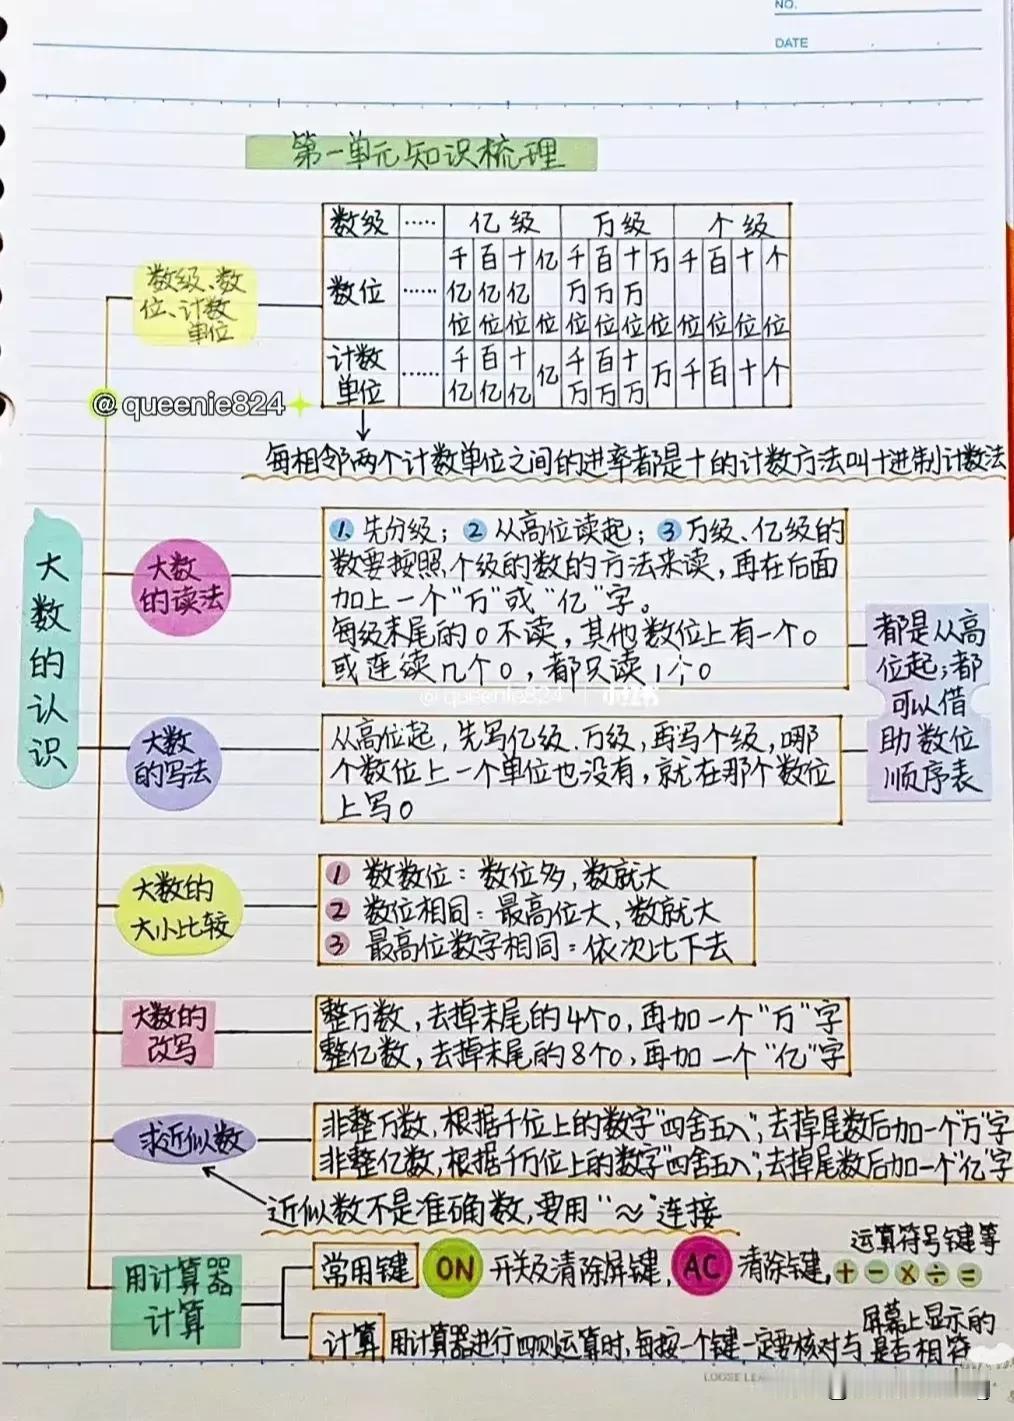 NO.
DATE
第一单元知识梳理
数级 ····· 亿级 万级 个级
数位 ······ 千亿位 百亿位 十亿位 亿位 千万位 百万位 十万位 万位 千位 百位 十位 个位
计数单位 ······ 千亿 百亿 十亿 亿 千万 百万 十万 万 千 百 十 个
数级、数
位、计数
单位
@queenie824
每相邻两个计数单位之间的进率都是十的计数方法叫十进制计数法
大数的认识
大数
的读法
1. 先分级；2 从高位读起；3 万级、亿级的
数要按照个级的数的方法来读，再在后面
加上一个“万”或“亿”字。
每级末尾的0不读，其他数位上有一个0
或连续几个0，都只读1个0
@queenie824 小红书
都是从高
位起；都
可以借
助数位
顺序表
大数
的写法
从高位起，先写亿级、万级，再写个级，哪
个数位上一个单位也没有，就在那个数位
上写0
大数的
大小比较
1 数数位：数位多，数就大
2 数位相同：最高位大，数就大
3 最高位数字相同：依次比下去
大数的
改写
整万数，去掉末尾的4个0，再加一个“万”字
整亿数，去掉末尾的8个0，再加一个“亿”字
求近似数
非整万数，根据千位上的数字“四舍五入”，去掉尾数后加一个“万”字
非整亿数，根据千万位上的数字“四舍五入”，去掉尾数后加一个“亿”字
近似数不是准确数，要用“≈”连接
用计算器
计算
常用键 ON 开关及清除屏键，AC 清除键，+ − × ÷ =
运算符号键等
计算 用计算器进行四则运算时，每按一个键一定要核对与
屏幕上显示的
是否相符
LOOSE LEA